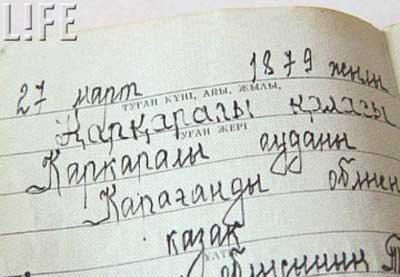 L!FE
27 март 1879 жылы
ТУҒАН КҮНІ, АЙЫ, ЖЫЛЫ,
Қарқаралы қаласы
ТУҒАН ЖЕРІ
Қарқаралы ауданы
Қарағанды
қазақ